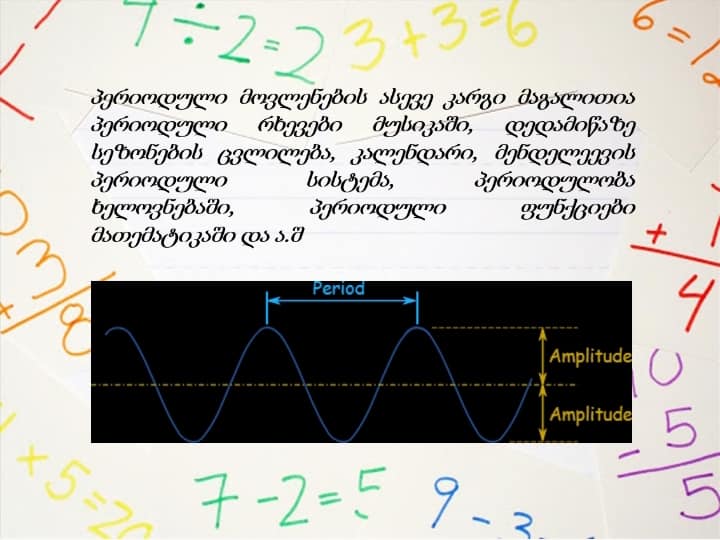 7÷2=2
3+3=6
6=12
პერიოდული მოვლენების ასევე კარგი მაგალითია
პერიოდული რხევები მუსიკაში, დედამიწაზე
სეზონების ცვლილება, კალენდარი, მენდელეევის
პერიოდული სისტემა, პერიოდულობა
ხელოვნებაში, პერიოდული ფუნქციები
მათემატიკაში და ა.შ
+
4
Period
Amplitude
Amplitude
- 5
5
+5=20
7-2=5
9-3